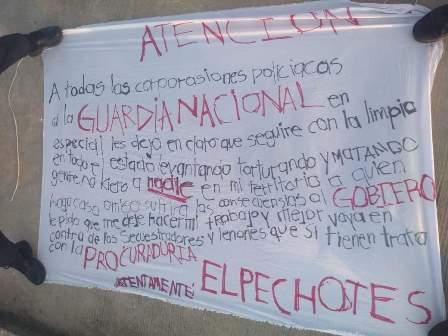 ATENCION
A todas las corporasiones policiacas
a la GUARDIA NACIONAL en
especial les dejo en claro que seguire con la limpia
en todo el estado levantando torturando y MATANGO
gente no kiero a nadie en mi territorio a quien
haga caso omiso sufrira las consecuensias al GOBIERO
le pido que me deje hacer mi trabajo y mejor vaya en
contra de los secuestradores y lenones que si tienen trato
con la PROCURADURIA
ATENTAMENTE: EL PECHOTES